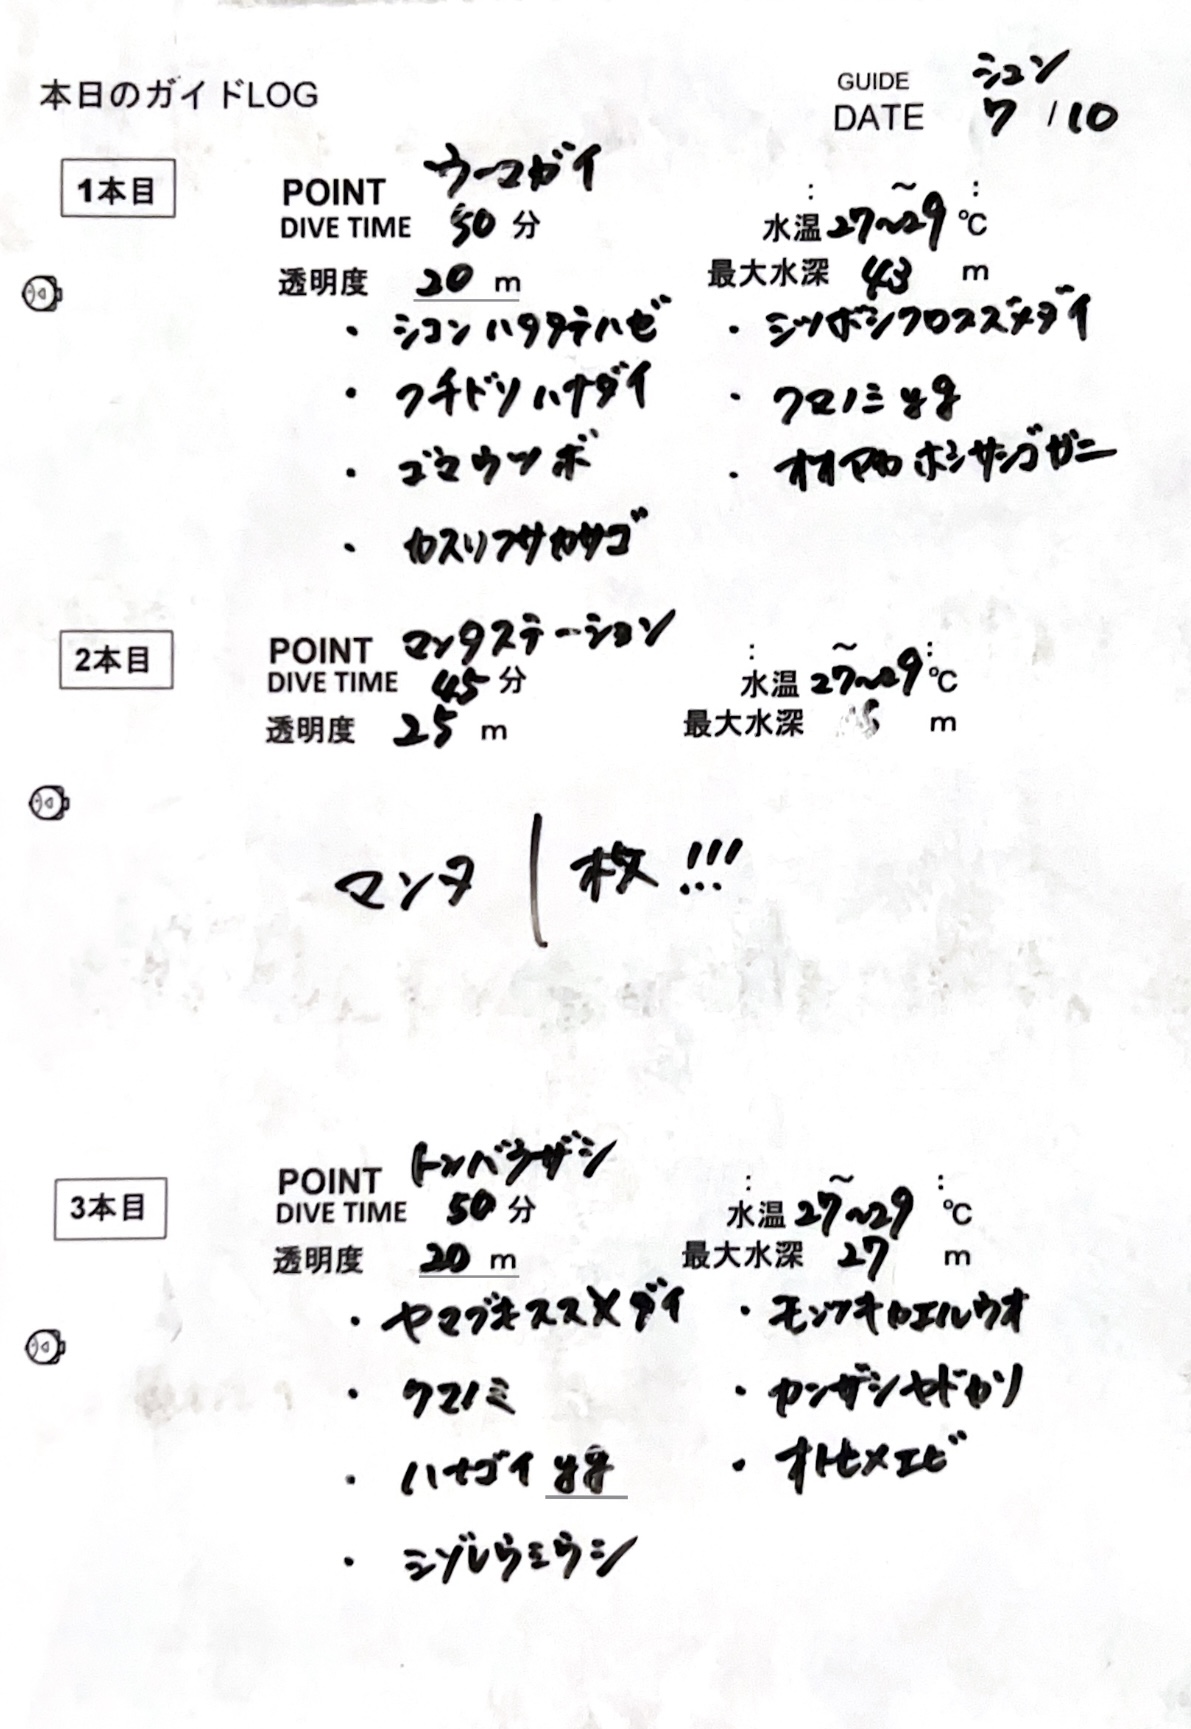 本日のガイドLOG
GUIDE シュン
DATE 7/10
1本目
POINT ウーマガイ
: ～ :
DIVE TIME 50 分
水温 27~29 ℃
透明度 20 m
最大水深 43 m
・シコンハタタテハゼ
・ミツボシクロスズメダイ
・クチドリハナダイ
・クマノミyg
・ゴマウツボ
・オオアカホシサンゴガニ
・カスリフサカサゴ
2本目
POINT マンタステーション
: ～ :
DIVE TIME 45 分
水温 27~29 ℃
透明度 25 m
最大水深 m
マンタ 1枚!!!
3本目
POINT トンバラザシ
: ～ :
DIVE TIME 50 分
水温 27~29 ℃
透明度 20 m
最大水深 27 m
・ヤマブキスズメダイ
・モンツキカエルウオ
・クマノミ
・カンザシヤドカリ
・ハナゴイyg
・オトヒメエビ
・ミゾレウミウシ